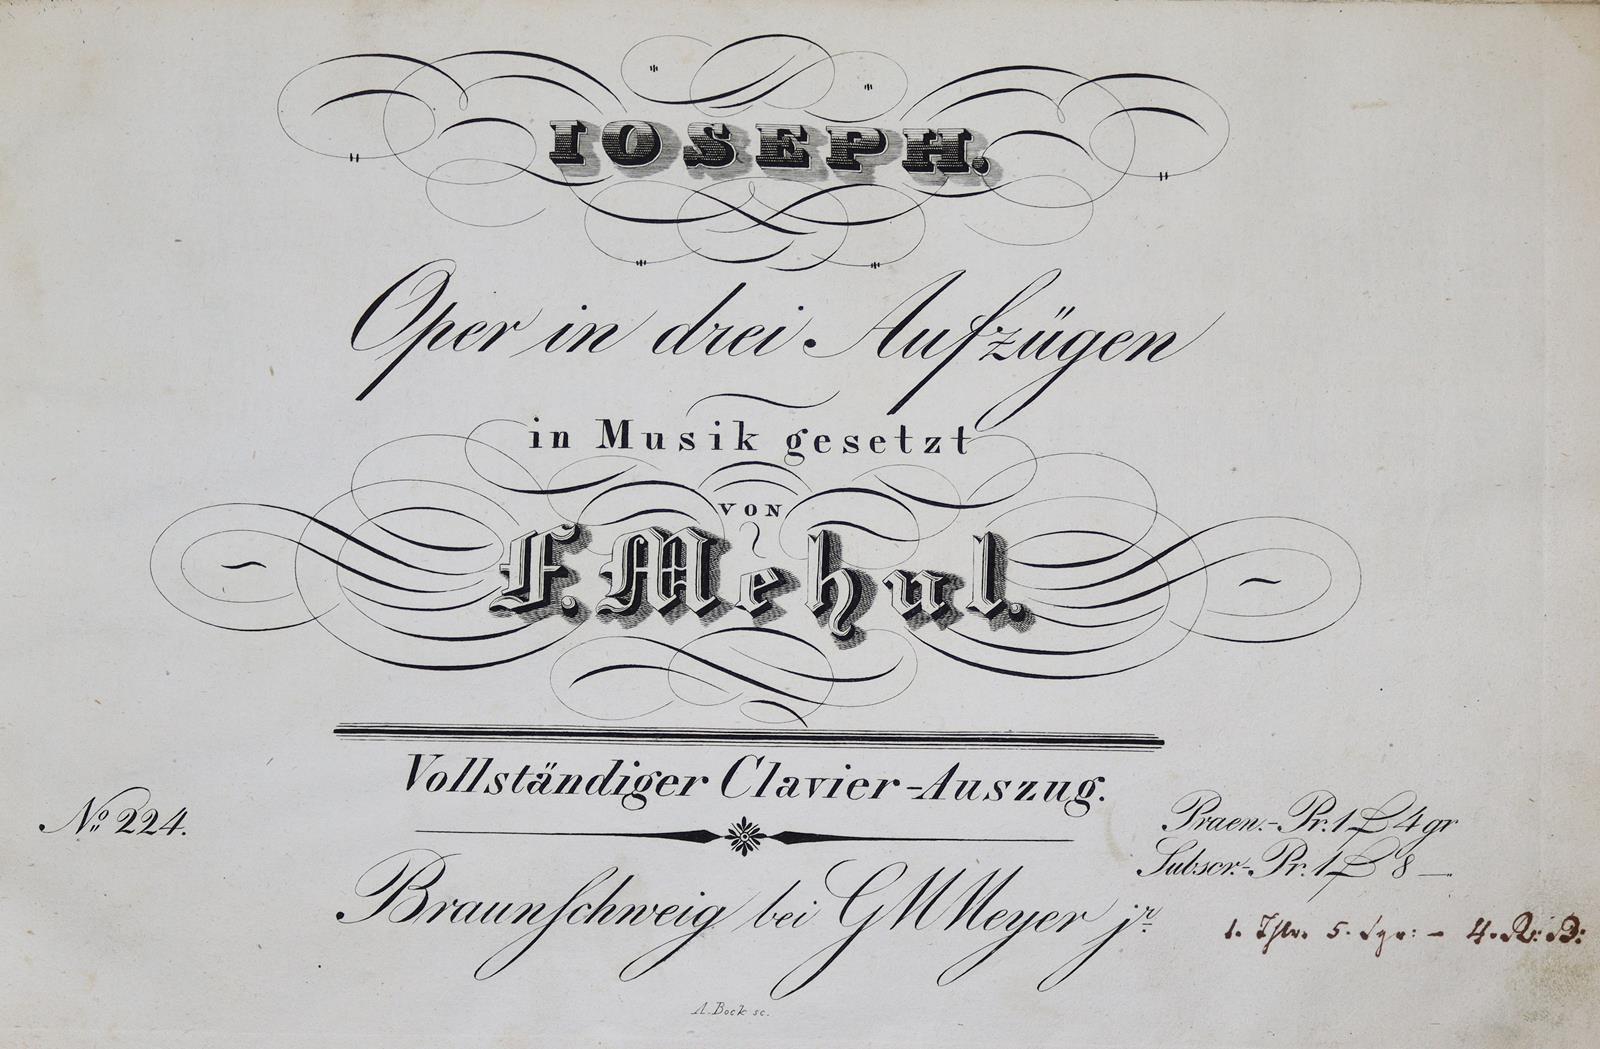 IOSEPH.
Oper in drei Aufzügen
in Musik gesetzt
VON
F. Mehul.
Vollständiger Clavier-Auszug.
No 224.
Praen.- Pr. 1 4 gr
Subscr.- Pr. 1 8 —
Braunschweig bei G M Meyer jr.
1. Thlr. 5. Sgr: - 4. R. B:
A. Bock sc.